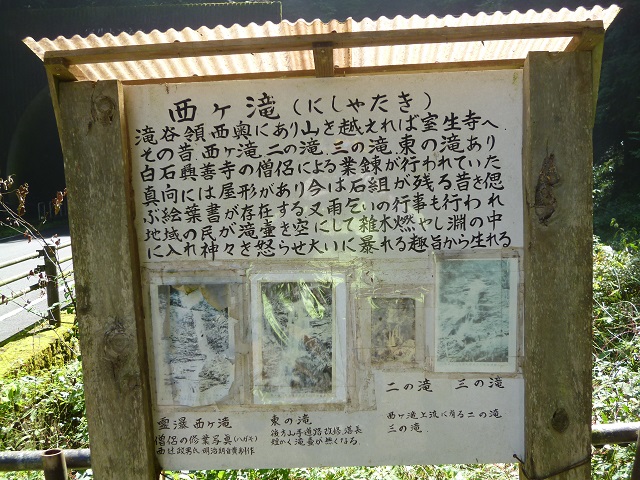 西ヶ滝(にしゃたき)
滝谷領西奥にあり山を越えれば室生寺へ
その昔、西ヶ滝、二の滝、三の滝、東の滝あり
白石興善寺の僧侶による業錬が行われていた
真向には屋形があり今は石組が残る昔を偲
ぶ絵葉書が存在する又雨乞いの行事も行われ
地域の民が滝壷を空にして雑木燃やし淵の中
に入れ神々を怒らせ大いに暴れる趣旨から生れる
霊瀑 西ヶ滝
僧侶の修業写真(ハガキ)
東の滝
後方山手道路改修
短かく滝壷が無くなる
二の滝 三の滝
西ヶ滝上流に有る二の滝
三の滝